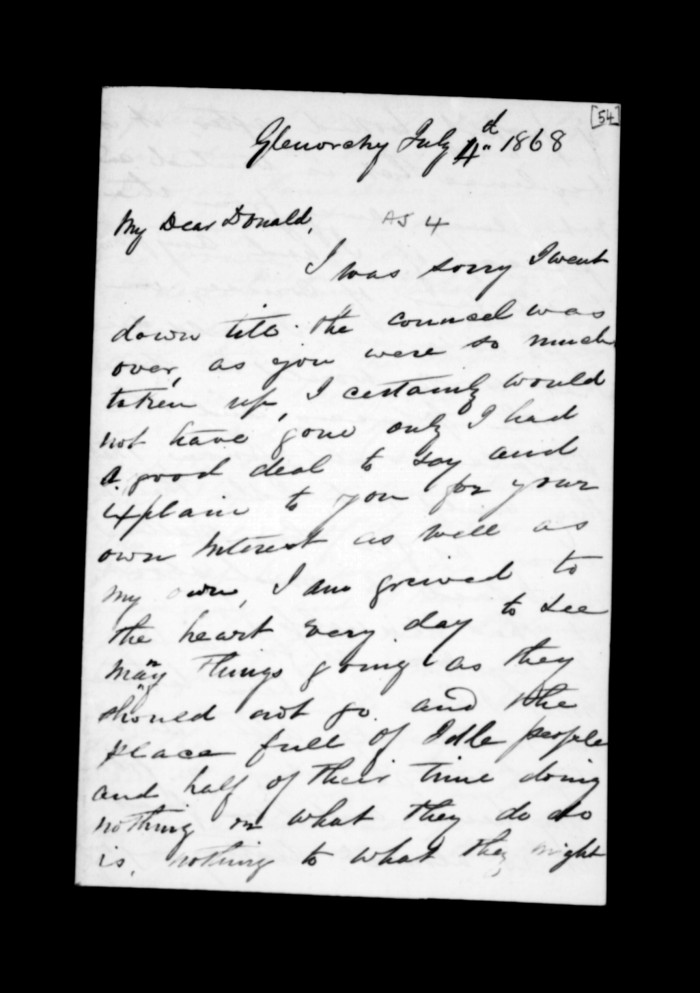 [54]
Glenorchy July 4d 1868
My Dear Donald,
AJ 4
I was sorry I went
down till the councel was
over, as you were so much
taken up, I certainly would
not have gone only I had
a good deal to say and
explain to you for your
own Interest as well as
my own, I am greived to
the heart every day to see
many things going as they
should not go and the
place full of Idle people
and half of their time doing
nothing or what they do do
is, nothing to what they might